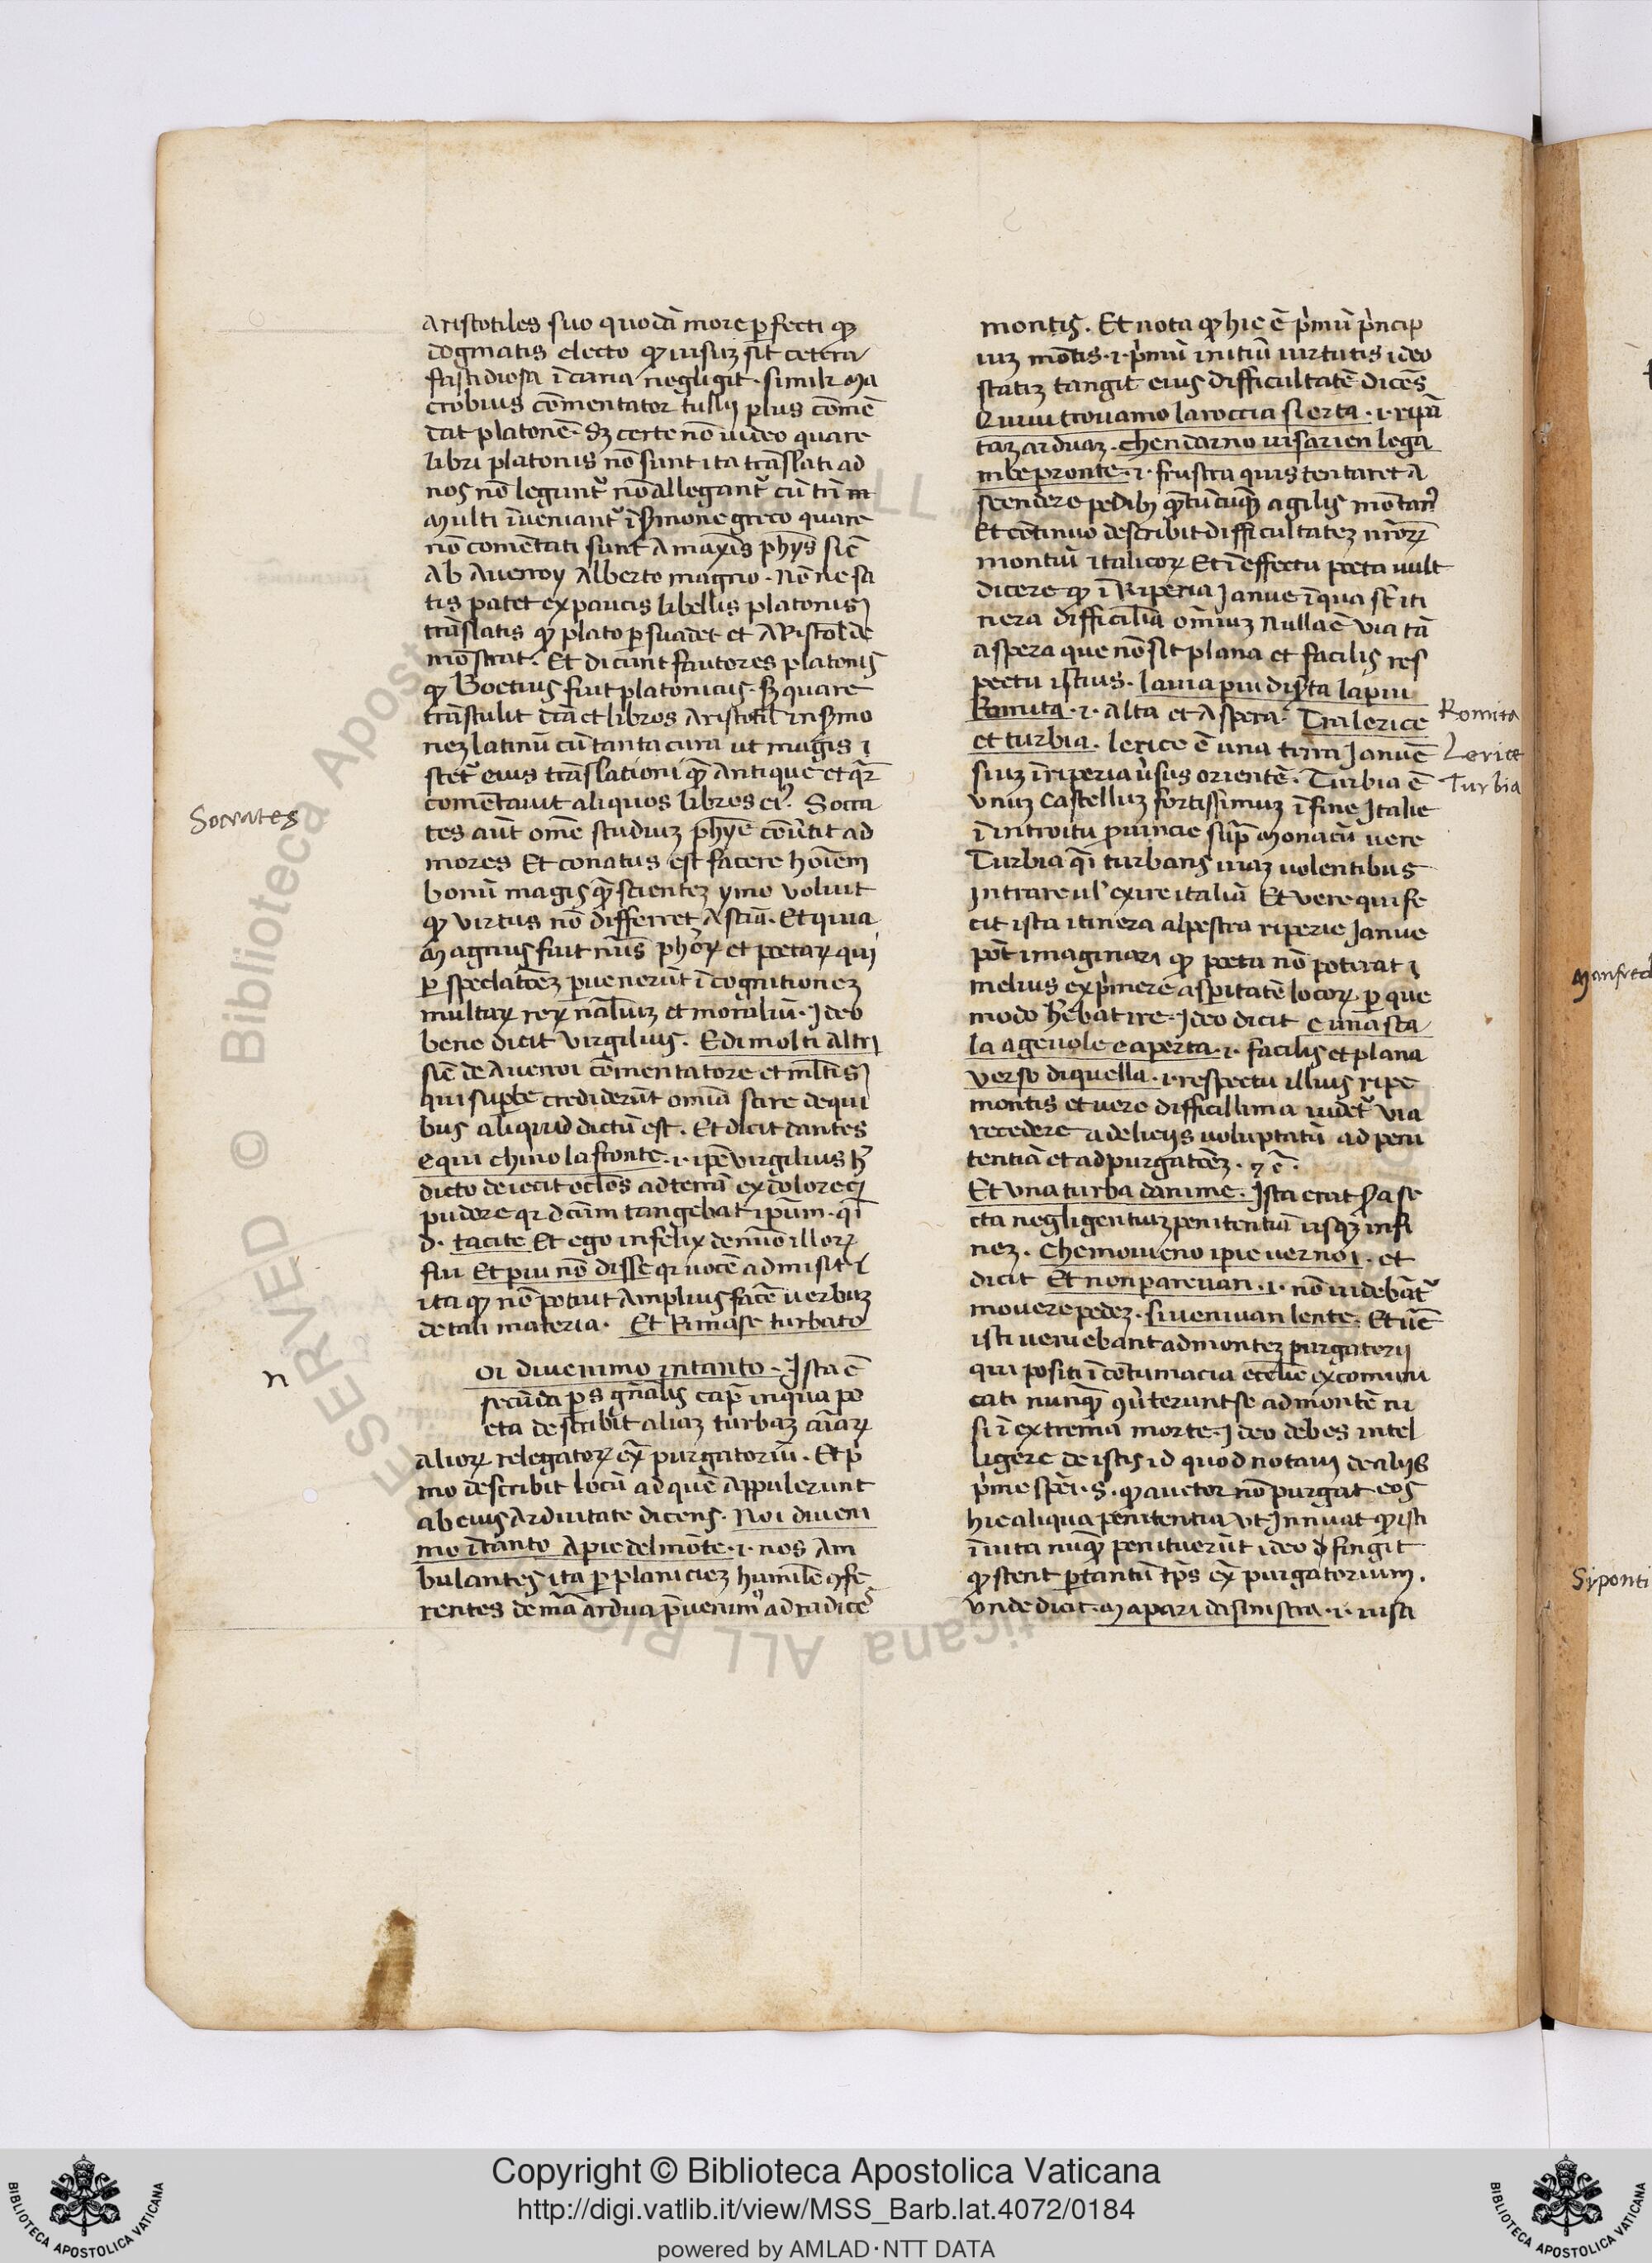 Aristotiles suo quodā more perfecti qp
dogmatis electo qp uisuz sit cetera
fastidiosa ī caria negligit. similr Ma
crobius cōmentator tullij plus cōmē
dat platonē. Sz certe nō uideo quare
libri platonis nō sunt ita trāslati ad
nos nō legunt̃ nō allegant̃ cū tn̄ m
Multi īveniant̃ ī ẜmone greco quare
nō comētati sunt A maxīs phys̄ sic̄
Ab Averroy Alberto magno. Nōne sa
tis patet ex paucis libellis platonis
trāslatis qp plato psuadet et ARistol de
mōstrat. Et dicunt fautores platonis
qp Boetius fuit platonicus. sz quare
trāstulit dīa et libros Aristotil in ẜmo
nez latinū cū tanta cura ut magis i
stet̃ eius trāslationi qp̄ Antique et qr̄
comētauit aliquos libros ei9. Socra
tes aūt omē studiuz phye cōũtit ad
mores Et conatus est facere hoiēm
bonū magis qp̄ scientez ymo voluit
qp virtus nō differret A sciā. Et quia
Magnus fuit nūs phōrꝝ et poetarꝝ qui
p speclatōez puenerūt ī cognitionez
multarꝝ reꝝ nāliuz et moraliū. Ideo
bene dicit virgilius. E di molti Altri
sic̄ de Averroi cōmentatore et mltīs
qui supbe crediderūt omīa scire de qui
bus aliquid dictū est. Et dicit dantes
e qui chino la fronte .i. ipē virgilius h̄
dicto deiecit oclōs ad terrā ex dolore et
pudore qr dcūm tangebat ipum. qi
d. tacite Et ego infelix de nūo illorꝝ
fui Et piu nō disse qr uocē admisit i
ita qp nō potuit Amplius facē verbuz
de tali materia. Et Rimase turbato
n
oi divenimo intanto. Ista ē
secūda ps gn̄alis cap̄ in qua po
eta describit aliaz turbaz aīarꝝ
aliorꝝ relegatorꝝ ex̄ purgatoriū. Et p
mo describit locū ad quē Appulerunt
ab eius Arduitate dicens. Noi diveni
mo ītanto A pie del mōte .i. nos Am
bulantes ita p planiciez humilē ɔfe
rentes de mā ardua pvenim9 ad radicē
Socrates
montis. Et nota qp hic ē p̓mū p̓ncip
iuz mōtis .i. p̓mū initiū uirtutis ideo
statiz tangit eius difficultatē dicēs
Quiui trouamo la roccia si erta .i. ripā
taz arduaz. che ndarno ui sarien le ga
mbe pronte .i. frustra quis tentaret A
scendere pedibz qp̄tūcūqp̄ agilis mōtan9
Et continuo describit difficultatez nr̄orꝝ
montiū italicorꝝ Et ī effectu poeta uult
dicere qp ī Riperia Janue ī qua st̄ iti
nera difficilia omīuz nulla ē via tā
aspera que nō sit plana et facilis res
pectu istius. la uia piu dip̃ta la piu
Romita .i. alta et Aspera. Tra lerice
et turbia. lerice ē una terra Januē
siuz ī riperia ũsus orientē. Turbia ē
vnuz castelluz fortissimuz ī fine Italie
ī introitu prouincie sup̄ Monacū uere
Turbia qi turbans uiaz uolentibus
Intrare ul' exire italiā Et vere qui fe
cit ista itinera alpestra riperie Janue
pōt imaginari qp poeta nō poterat i
melius exp̓mere aspitatē locorꝝ p que
modo hēbat ire. Ideo dicit e una sca
la ageuole e aperta .i. facilis et plana
verso di quella .i. respectu illius ripe
montis et uere difficillima uidet̃ via
recedere a delicijs uoluptatū ad peni
tentiā et ad purgatōez. ⁊ c̄.
Et vna turba danime. Ista erat
cta negligentiuz penitentiā usqz in fi
nez. Che mouieno i pie uer noi. et
dicit Et non pareuan .i. nō uidebāt̃
mouere pedez. si ueniuan lente. Et uē
isti ueniebant ad montez purgatorij
qui positi ī cōtumacia ecclīe excomuni
cati nunqp̄ ɔũterunt se ad montē ni
si ī extrema morte. Ideo debes intel
ligere de istis id quod notaui de alijs
p̓me spēi. S. qp auctor nō purgat eos
hic aliqua penitentia vt Innuat qp isti
ī uita nūqp̄ penituerūt ideo d fingit
qp stent p tantū tp̄s ex̄ purgatorium.
Vnde dicit. Ma pari da sinistra .i. iusti
Romita
Lerice
Turbia
Manfred
Syponti
Copyright © Biblioteca Apostolica Vaticana
http://digi.vatlib.it/view/MSS_Barb.lat.4072/0184
powered by AMLAD·NTT DATA
BIBLIOTECA APOSTOLICA VATICANA
BIBLIOTECA APOSTOLICA VATICANA